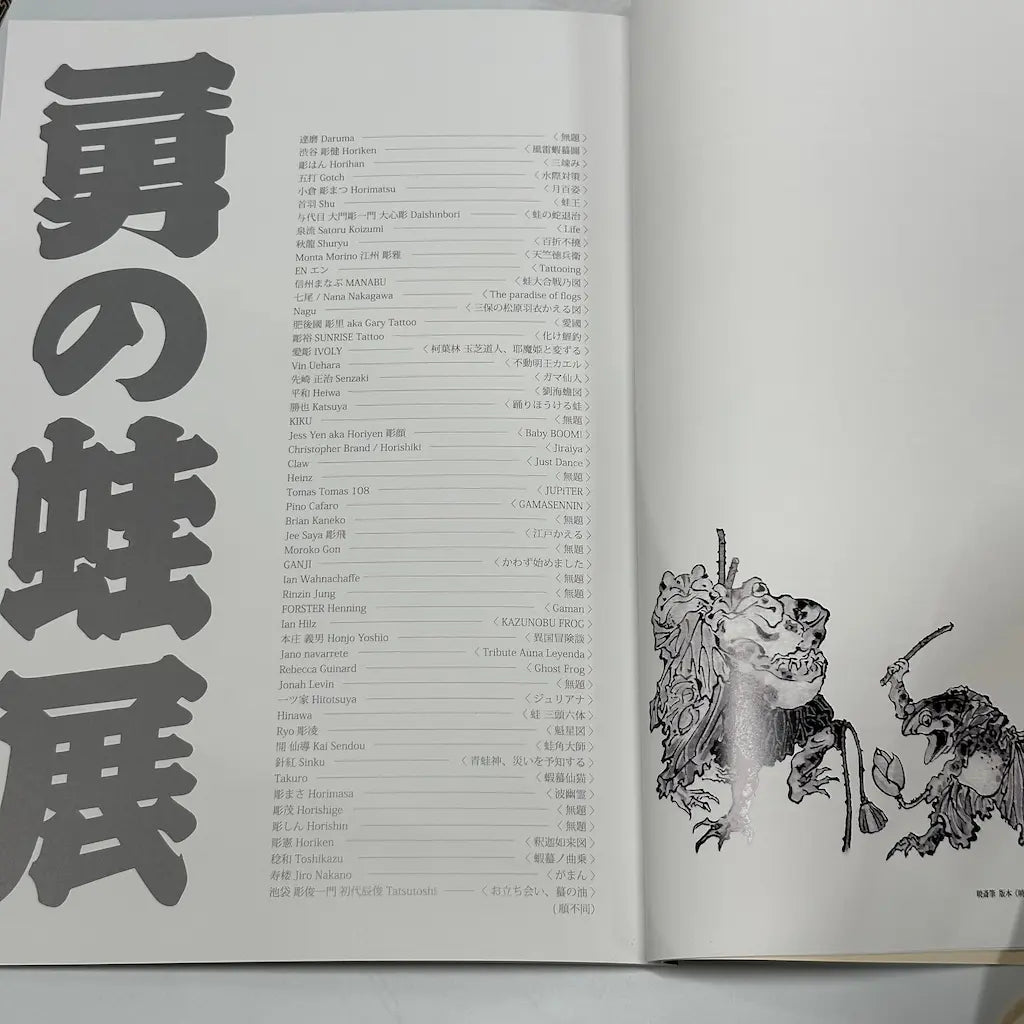 勇の蛙展
達磨 Daruma 〈 無題 〉
渋谷 彫健 Horiken 〈 風雷蝦蟇圖 〉
彫はん Horihan 〈 三竦み 〉
五打 Gotch 〈 水際対策 〉
小倉 彫まつ Horimatsu 〈 月百姿 〉
首羽 Shu 〈 蛙王 〉
与代目 大門彫一門 大心彫 Daishinbori 〈 蛙の蛇退治 〉
泉流 Satoru Koizumi 〈 Life 〉
秋龍 Shuryu 〈 百折不撓 〉
Monta Morino 江州 彫雅 〈 天竺徳兵衛 〉
EN エン 〈 Tattooing 〉
信州まなぶ MANABU 〈 蛙大合戦乃図 〉
七尾 / Nana Nakagawa 〈 The paradise of flogs 〉
Nagu 〈 三保の松原羽衣かえる図 〉
肥後國 彫里 aka Gary Tattoo 〈 愛國 〉
彫裕 SUNRISE Tattoo 〈 化け鯉釣 〉
愛彫 IVOLY 〈 柯葉林 玉芝道人、耶魔姫と変ずる 〉
Vin Uehara 〈 不動明王カエル 〉
先崎 正治 Senzaki 〈 ガマ仙人 〉
平和 Heiwa 〈 劉海蟾図 〉
勝也 Katsuya 〈 踊りほうける蛙 〉
KIKU 〈 無題 〉
Jess Yen aka Horiyen 彫顔 〈 Baby BOOM! 〉
Christopher Brand / Horishiki 〈 Jiraiya 〉
Claw 〈 Just Dance 〉
Heinz 〈 無題 〉
Tomas Tomas 108 〈 JUPiTER 〉
Pino Cafaro 〈 GAMASENNIN 〉
Brian Kaneko 〈 無題 〉
Jee Saya 彫飛 〈 江戸かえる 〉
Moroko Gon 〈 無題 〉
GANJI 〈 かわず始めました 〉
Ian Wahnachaffe 〈 無題 〉
Rinzin Jung 〈 無題 〉
FORSTER Henning 〈 Gaman 〉
Ian Hilz 〈 KAZUNOBU FROG 〉
本庄 義男 Honjo Yoshio 〈 異国冒険談 〉
Jano navarrete 〈 Tribute Auna Leyenda 〉
Rebecca Guinard 〈 Ghost Frog 〉
Jonah Levin 〈 無題 〉
一ツ家 Hitotsuya 〈 ジュリアナ 〉
Hinawa 〈 蛙 三頭六体 〉
Ryo 彫凌 〈 魁星図 〉
開 仙導 Kai Sendou 〈 蛙角大師 〉
針紅 Sinku 〈 青蛙神、災いを予知する 〉
Takuro 〈 蝦蟇仙猫 〉
彫まさ Horimasa 〈 波幽霊 〉
彫茂 Horishige 〈 無題 〉
彫しん Horishin 〈 無題 〉
彫憲 Horiken 〈 釈迦如来図 〉
稔和 Toshikazu 〈 蝦蟇ノ曲乗 〉
寿楼 Jiro Nakano 〈 がまん 〉
池袋 彫俊一門 初代辰俊 Tatsutoshi 〈 お立ち会い、蟇の油 〉
(順不同)
暁斎筆 版本